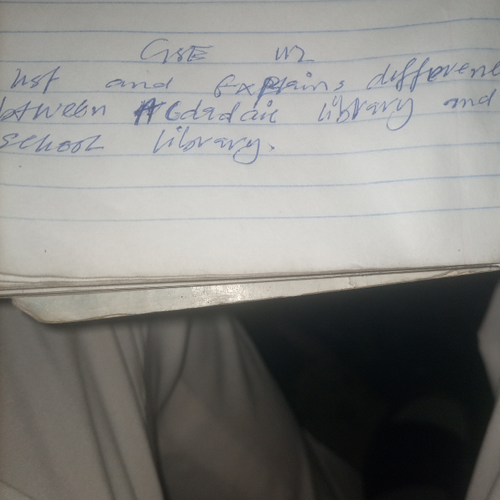 GSE 112
list and Explains difference
between Acdadaic library and
school library.